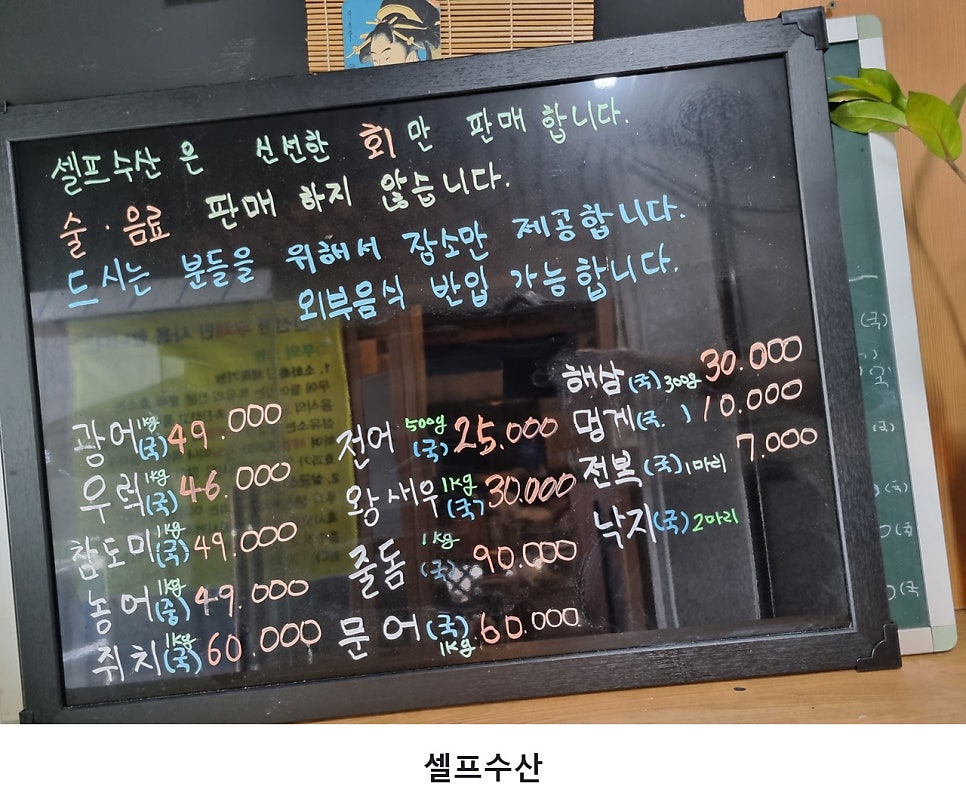 셀프수산 은 신선한 회 만 판매 합니다.
술·음료 판매 하지 않습니다.
드시는 분들을 위해서 장소만 제공합니다.
외부음식 반입 가능합니다.
광어 1kg (국) 49.000
우럭 1kg (국) 46.000
참도미 1kg (국) 49.000
농어 1kg (중) 49.000
쥐치 1kg (국) 60.000
전어 500g (국) 25.000
왕새우 1kg (국) 30.000
줄돔 1kg (국) 90.000
문어 (국) 1kg 60.000
해삼 (국) 300g 30.000
멍게 (국. ) 10.000
전복 (국) 1마리 7.000
낙지 (국) 2마리
셀프수산